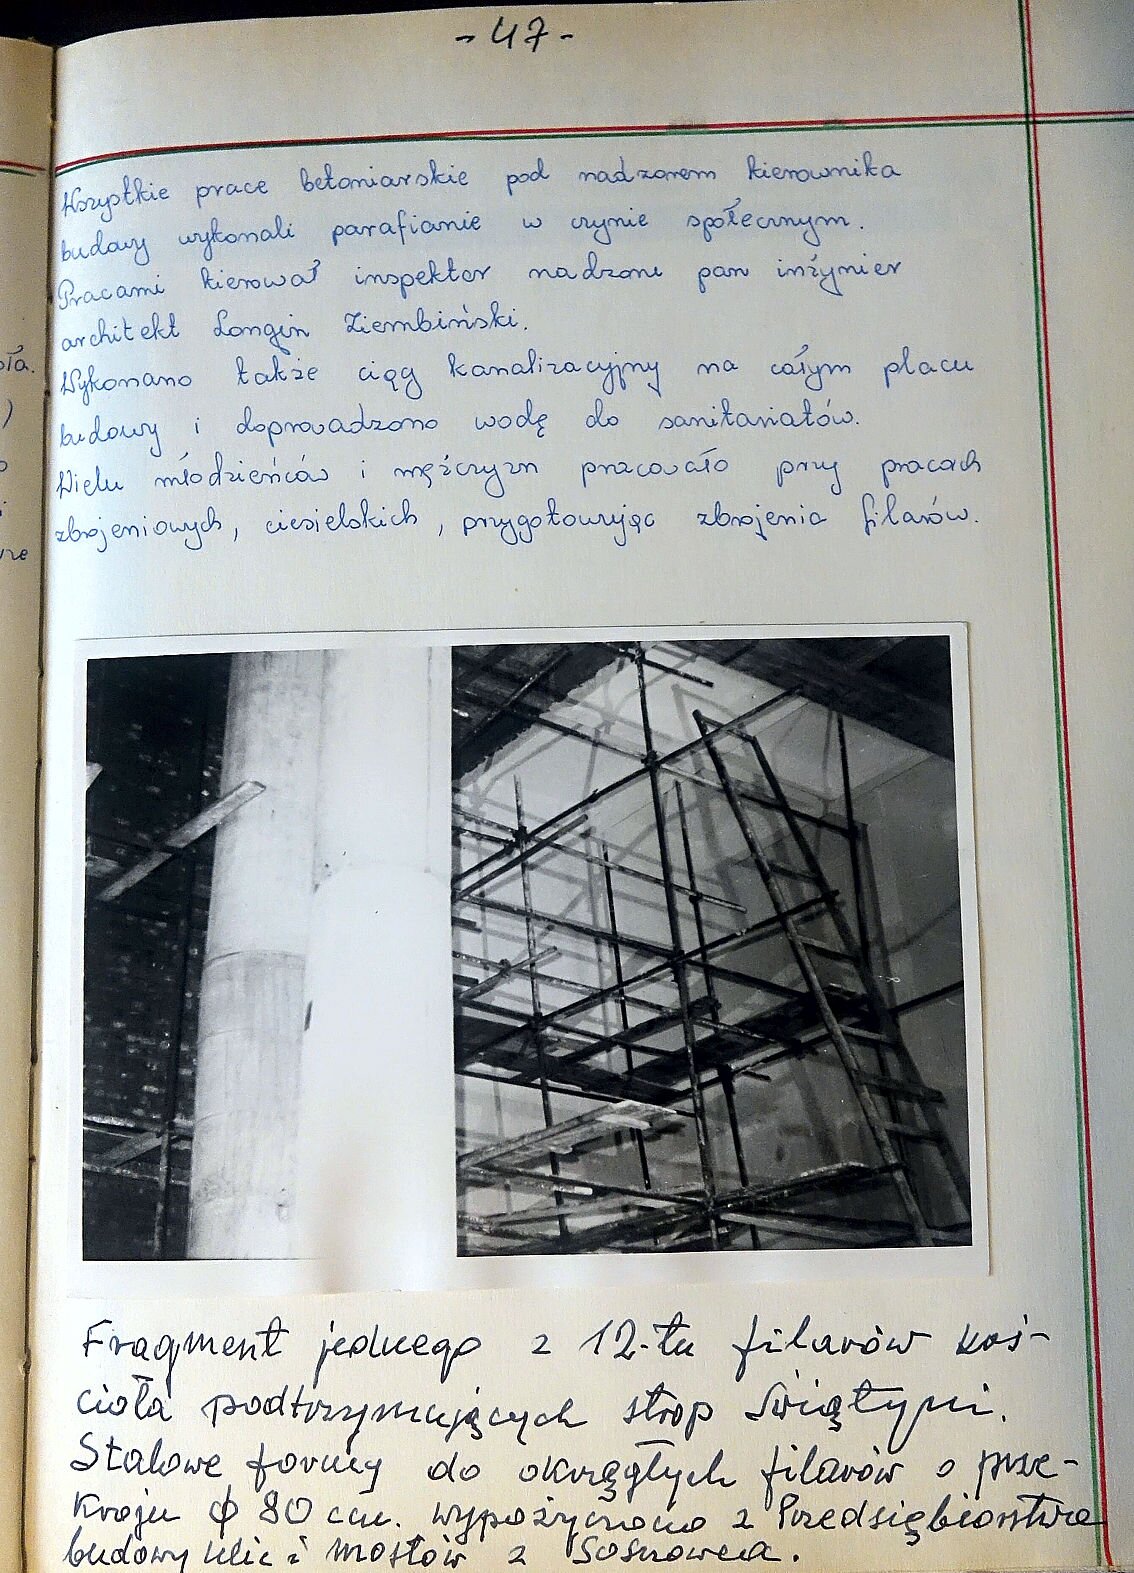 - 47 -
Wszystkie prace betoniarskie pod nadzorem kierownika
budowy wykonali parafianie w czynie społecznym.
Pracami kierował inspektor nadzoru pan inżynier
architekt Longin Ziembiński.
Wykonano także ciąg kanalizacyjny na całym placu
budowy i doprowadzono wodę do sanitariatów.
Wielu młodzieńców i mężczyzn pracowało przy pracach
zbrojeniowych, ciesielskich, przygotowując zbrojenia filarów.
Fragment jednego z 12-tu filarów koś-
cioła podtrzymujących strop świątyni.
Stalowe formy do okrągłych filarów o prze-
kroju φ 80 cm. wypożyczono z Przedsiębiorstwa
budowy ulic i mostów z Sosnowca.